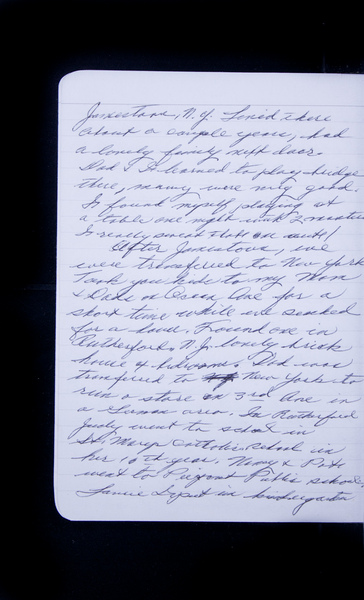 Jamestown, N.Y. Lived there
about a couple years, had
a lovely family next door.
Dad & I learned to play bridge
there, many were very good.
I found myself playing at
a table one night with 3 masters
I really sweat that one out!
After Jamestown, we
were transferred to New York
Took you kids to my Mom
& Dads on Ocean Ave for a
short time while we looked
for a house. Found one in
Rutherford, N.J. lovely brick
house 4 bedrooms. Dad was
transfered to New York to
run a store on 3rd Ave in
a German area. In Rutherford
Judy went to school in
St. Marys Catholic School in
her 10th year. Nancy & Pete
went to Pierpont Public school.
Janice I put in kindergarten